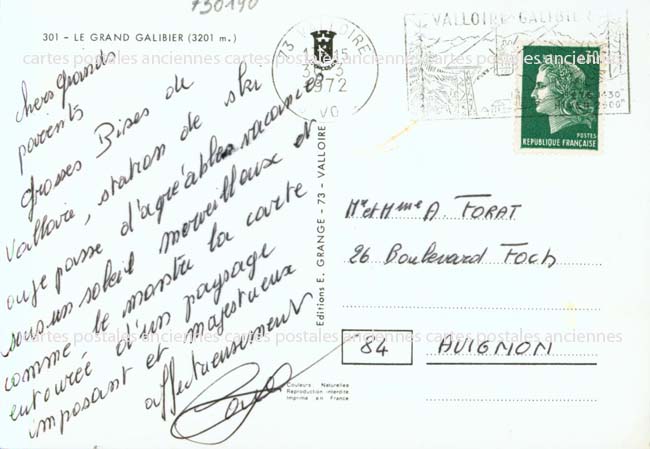 730190
301 - LE GRAND GALIBIER (3201 m.)
chers grands
parents
grosses Bises de
Valloire, station de ski
ou je passe d'agréables vacances
sous un soleil merveilleux et
comme le montre la carte
entourée d'un paysage
imposant et majestueux
affectueusement
Editions E. GRANGE - 73 - VALLOIRE
73 VALLOIRE
1972
VALLOIRE-GALIBIER
POSTES
REPUBLIQUE FRANÇAISE
Mr et Mme A. FORAT
26 Boulevard Foch
84 AVIGNON
Couleurs Naturelles
Reproduction interdite
Imprimé en France
cartes postales anciennes cartes postales anciennes cartes postales anciennes
cartes postales anciennes cartes postales anciennes cartes postales anciennes